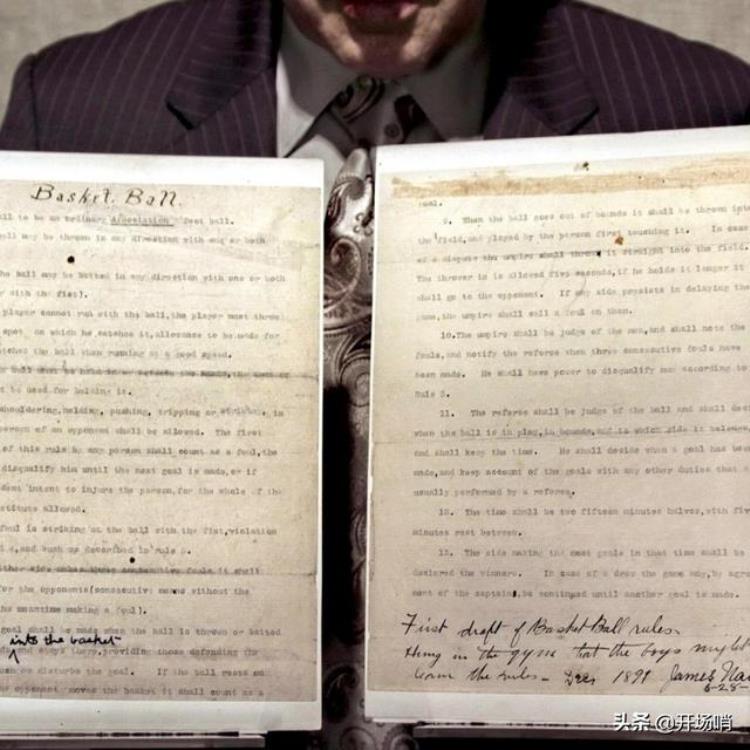 Basket Ball.
ll to be an ordinary Association foot ball.
ll may be thrown in any direction with one or both
he ball may be batted in any direction with one or both
r with the fist).
player cannot run with the ball, the player must throw
spot on which he catches it, allowance to be made for
atches the ball when running at a good speed.
t be used for holding it.
shouldering, holding, pushing, tripping or striking, in
person of an opponent shall be allowed. The first
of this rule by any person shall count as a foul, the
disqualify him until the next goal is made, or if
dent intent to injure the person, for the whole of the
stitute allowed.
foul is striking at the ball with the fist, violation
4, and such as described in rule 5.
ither side makes three consecutive fouls it shall
for the opponents (consecutive means without the
he meantime making a foul).
goal shall be made when the ball is thrown or batted
into the basket
and stays there, providing those defending the
or disturbe the goal. If the ball rests on
opponent moves the basket it shall count as a
goal.
9. When the ball goes out of bounds it shall be thrown into
the field, and played by the person first touching it. In case
of a dispute the umpire shall throw it straight into the field.
The thrower in is allowed five seconds, if he holds it longer it
shall go to the opponent. If any side presists in delaying the
game, the umpire shall call a foul on them.
10. The umpire shall be judge of the men, and shall note the
fouls, and notify the referee when three consecutive fouls have
been made. He shall have power to disqualify men according to
Rule 5.
11. The referee shall be judge of the ball and shall dec
when the ball is in play, in bounds, and to which side it belongs,
and shall keep the time. He shall decide when a goal has been
made, and keep account of the goals with any other duties that a
usually performed by a referee.
12. The time shall be two fifteen minutes halves, with five
minutes rest between.
13. The side making the most goals in that time shall be
declared the winners. In case of a draw the game may, by agre
ment of the captains, be continued until another goal is made.
First draft of Basket Ball rules.
Hung in the gym that the boys might
learn the rules - Dec. 1891 James Nai
6-28-
头条 @开场哨